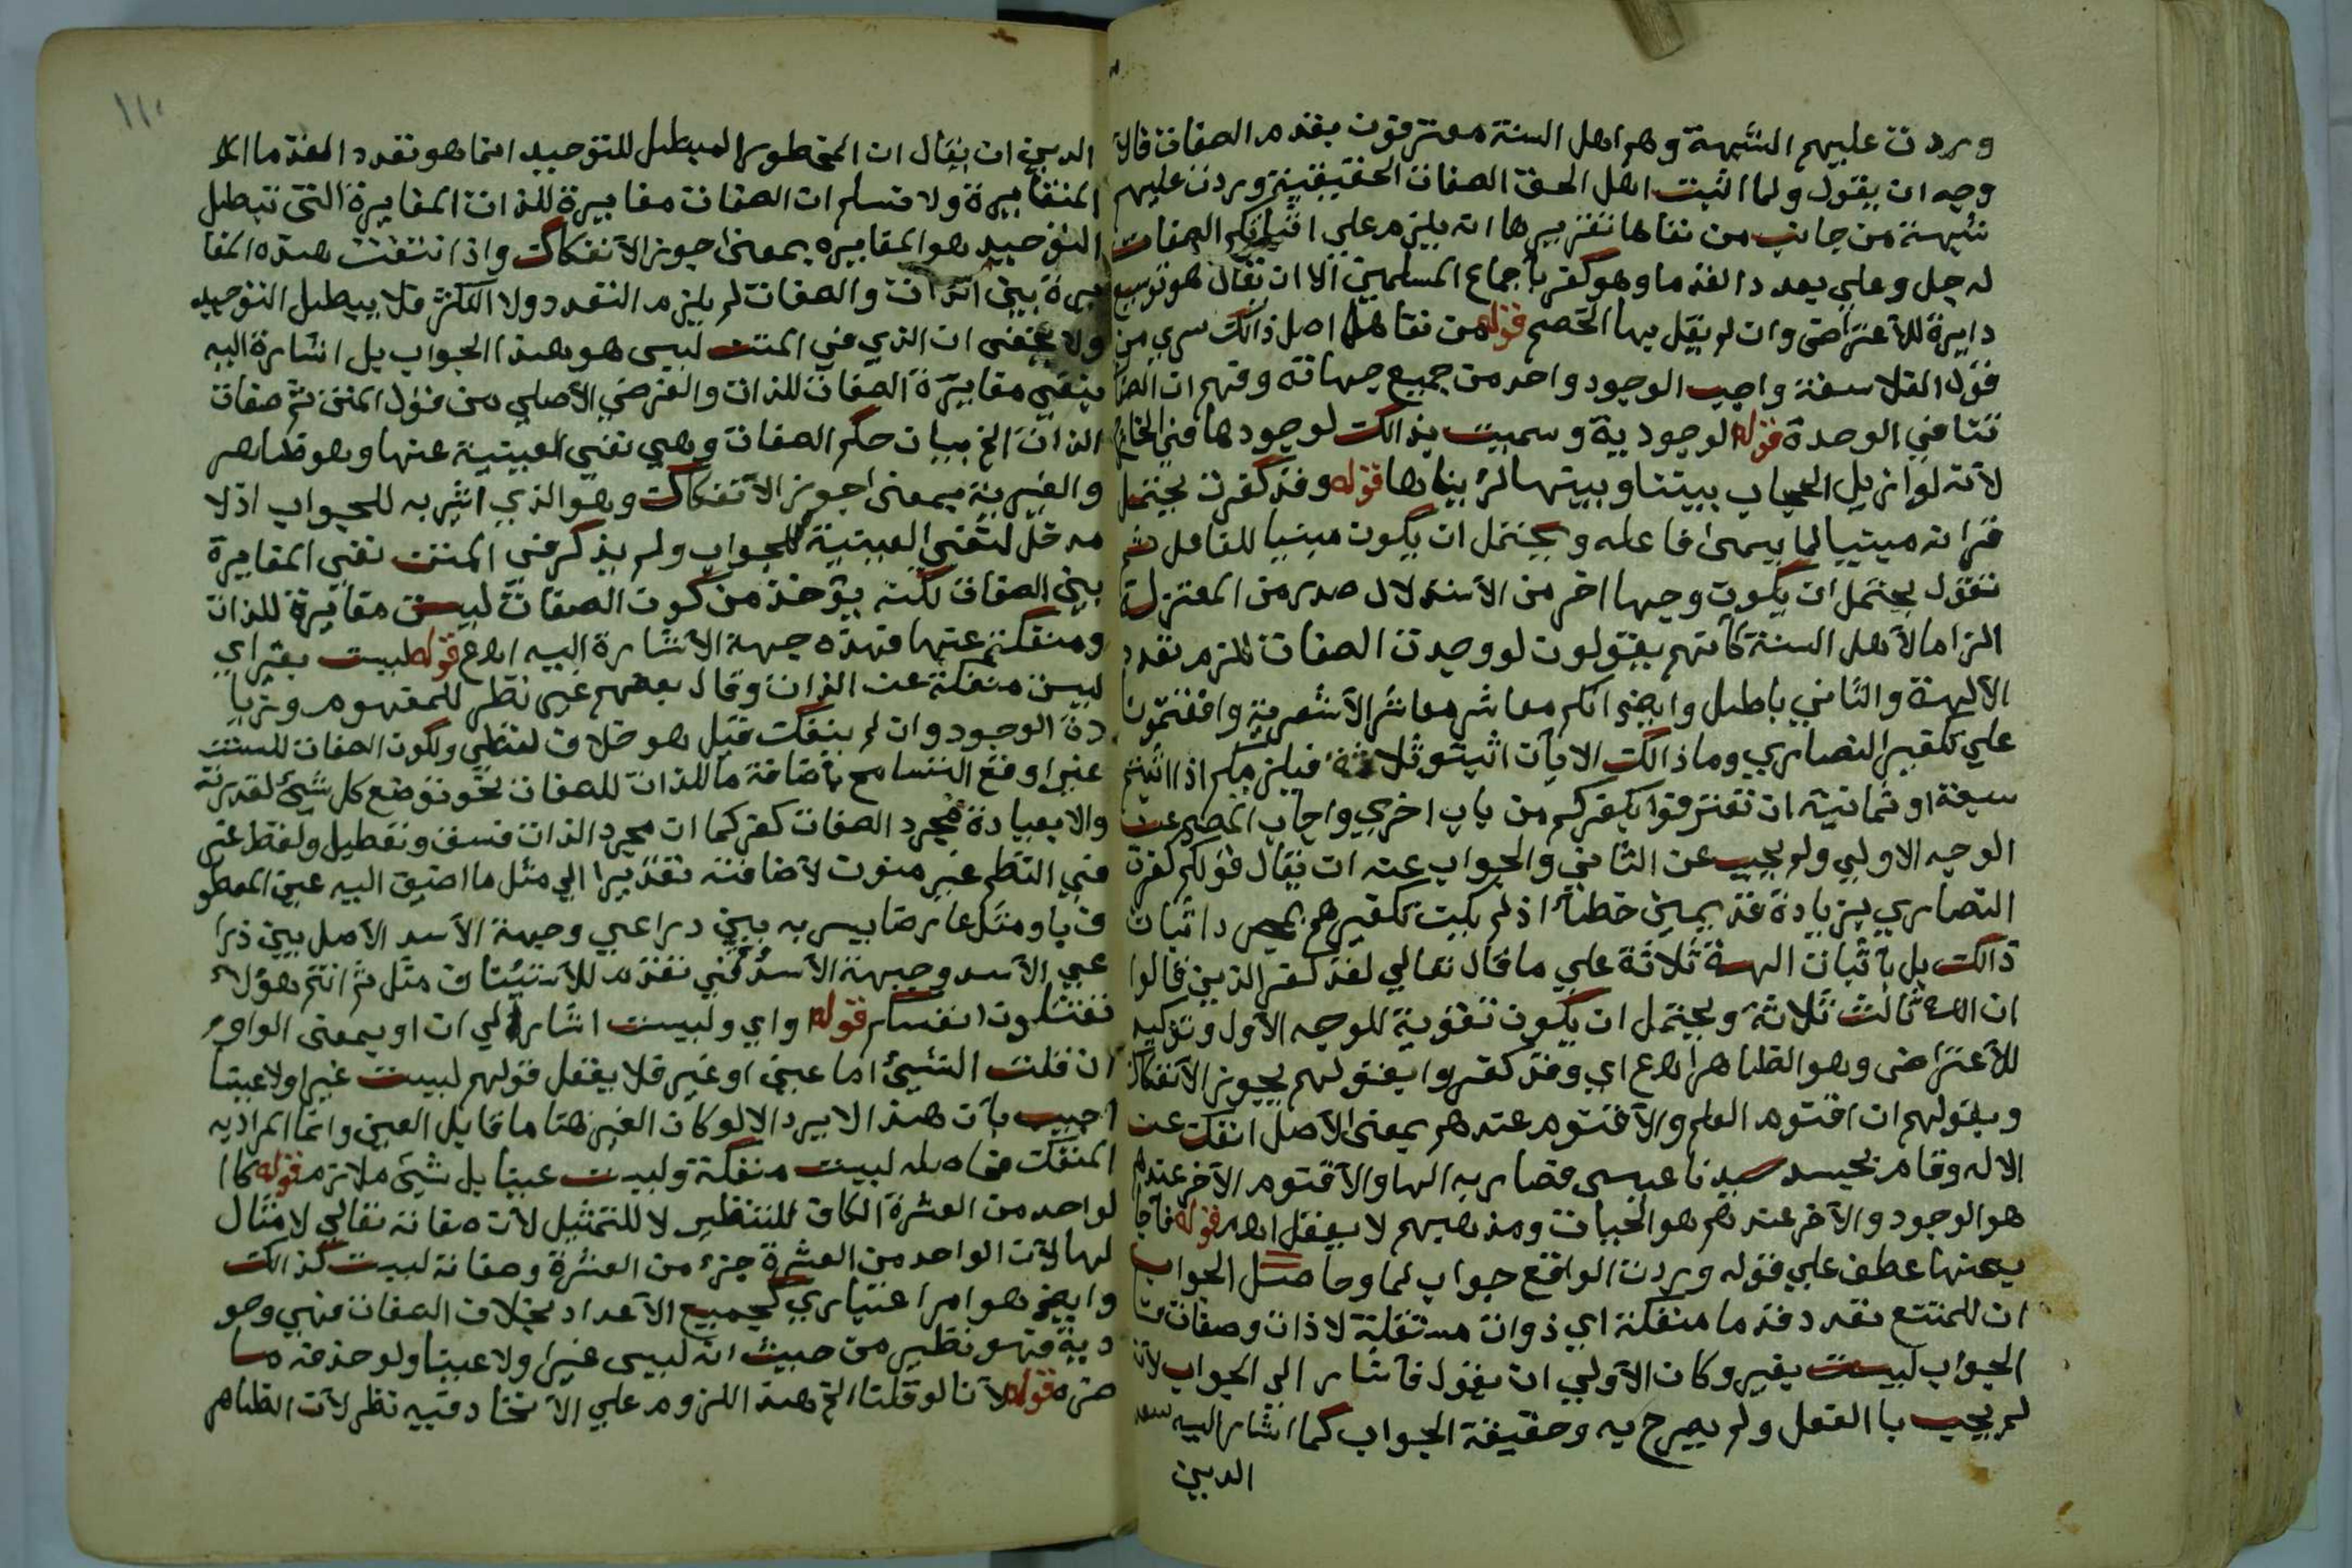 وردت عليهم الشبهة وهم اهل السنة معترفون بقدم الصفات فالا
وجه ان يقول ولما اثبت اهل الحق الصفات الحقيقية وردت عليهم
شبهة من جانب من نفاها تقريرها انه يلزم علي اثباتكم الصفات
له جل وعلي تعدد القدما وهو كفر باجماع المسلمين الا ان يقال هو توسيع
دايرة للاعتراض وان لم يقل بها الخصم قوله من نفاها اصل ذالك سري من
قول الفلاسفة واجب الوجود واحد من جميع جهاته وفهم ان الصفا
تنافي الوحدة قوله الوجودية وسميت بذالك لوجودها في الخارج
لانه لو ازيل الحجاب بيننا وبينها لرايناها قوله وقد كفرت يحتمل
قراته مبنيا لما يسمى فاعله ويحتمل ان يكون مبنيا للفاعل ثم
نقول يحتمل ان يكون وجها اخر من الاستدلال صدر من المعتزلة
الزاما لاهل السنة كانهم يقولون لو وجدت الصفات للزم تعدد
الالهة والثاني باطل وايضا انكم معاشر معاشر الاشعرية وافقتمونا
علي تكفير النصاري وما ذالك الا بان اثبتو ثلاثة فيلزمكم اذا اثبتم
سبعة او ثمانية ان تعترفوا بكفركم من باب اخري واجاب المص عن
الوجه الاولي ولم يجب عن الثاني والجواب عنه ان يقال قولكم كفرت
النصاري بزيادة قديمين خطأ اذ لم يكن تكفيرهم بمجرد اثبات
ذالك بل باثبات الهة ثلاثة علي ما قال تعالي لقد كفر الذين قالوا
ان الله ثالث ثلاثة ويحتمل ان يكون تقوية للوجه الاول وتوكيد
للاعتراض وهو الظاهر اهع اي وقد كفروا بقولهم بجوز الانفكاك
وبقولهم ان اقنوم العلم والاقنوم عندهم بمعنى الاصل انفك عن
الاله وقام بجسد سيدنا عيسى فصار به الها والاقنوم الآخر عندهم
هو الوجود والآخر عندهم هو الحيات ومذهبهم لا يعقل اهـ قوله فاجا
ب عنها عطف علي قوله وردت الواقع جواب لما وحاصل الجواب
ان الممتنع تعدد قدما منفكة اي ذوات مستقلة لا ذات وصفات
الجواب ليست بغير وكان الاولي ان يقول فاشار الي الجواب لانه
لم يجب با الفعل ولم يصرح به وحقيقة الجواب كما اشار اليه سعد
الدين
الدين ان يقال ان المحظور المبطل للتوحيد انما هو تعدد القدما
المتغايرة ولا نسلم ان الصفات مغايرة للذات المغايرة التي تبطل
التوحيد هو المغايره بمعنى جوز الانفكاك واذا انتفت هذه المغا
يرة بين الذات والصفات لم يلزم التعدد ولا التكثر فلا يبطل التوحيد
ولا يخفى ان الذي في المتن ليس هو هذا الجواب بل اشارة اليه
بنفي مغايرة الصفات للذات والغرض الاصلي من قول المتن ثم صفات
الذات الخ بيان حكم الصفات وهي نفي العينية عنها وهو ظاهر
والغيرية بمعنى جوز الانفكاك وهو الذي اشير به للجواب اذ لا
مدخل لنفي العينية للجواب ولم يذكر في المتن نفي المغايرة
بين الصفات لكنه يوخذ من كون الصفات ليست مغايرة للذات
ومنفكة عنها فهذه جهة الاشارة اليه اهع قوله ليست بغير اي
ليست منفكة عن الذات وقال بعضهم غير نظر للمفهوم وزيا
دة الوجود وان لم ينفك قيل هو خلاف لفظي ولكون الصفات ليست
غيرا وقع التسامح باضافة ما للذات للصفات نحو تواضع كل شيئ لقدرته
والا بعبادة مجرد الصفات كفر كما ان مجرد الذات فسق وتعطيل ولفظ غير
في النظم غير منون لاضافته تقديرا الي مثل ما اضيق اليه عين المعطو
ف يا ومثل عارضا يسر به بين دراعي وجبهة الاسد الاصل بين ذرا
عي الاسد وجبهة الاسد ثم انتم هؤلاء
تقتلون انفسكم قوله واي وليست اشار الي ان او بمعنى الواو
ان قلت الشيئ اما عين او غير فلا يعقل قولهم ليست غيرا ولا عينا
اجيب بان هذا لا يرد الا لو كان الغير هنا ما قابل العين وانما المراد به
المنفك فحاصله ليست منفكة وليست عينا بل شيئ ملازم قوله كا
لواحد من العشرة الكاف للتنظير لا للتمثيل لان صفاته تعالي لا مثال
لها لان الواحد من العشرة جزء من العشرة وصفاته ليست كذالك
وايضا هو امرا عتباري كجميع الاعداد بخلاف الصفات فهي وجو
دية فهو نظير من حيث انه ليس غيرا ولا عينا ولو حذفه ما
ضره قوله لانا لو قلنا الخ هذا اللزوم علي الاتحاد فيه نظر لان الظاهر